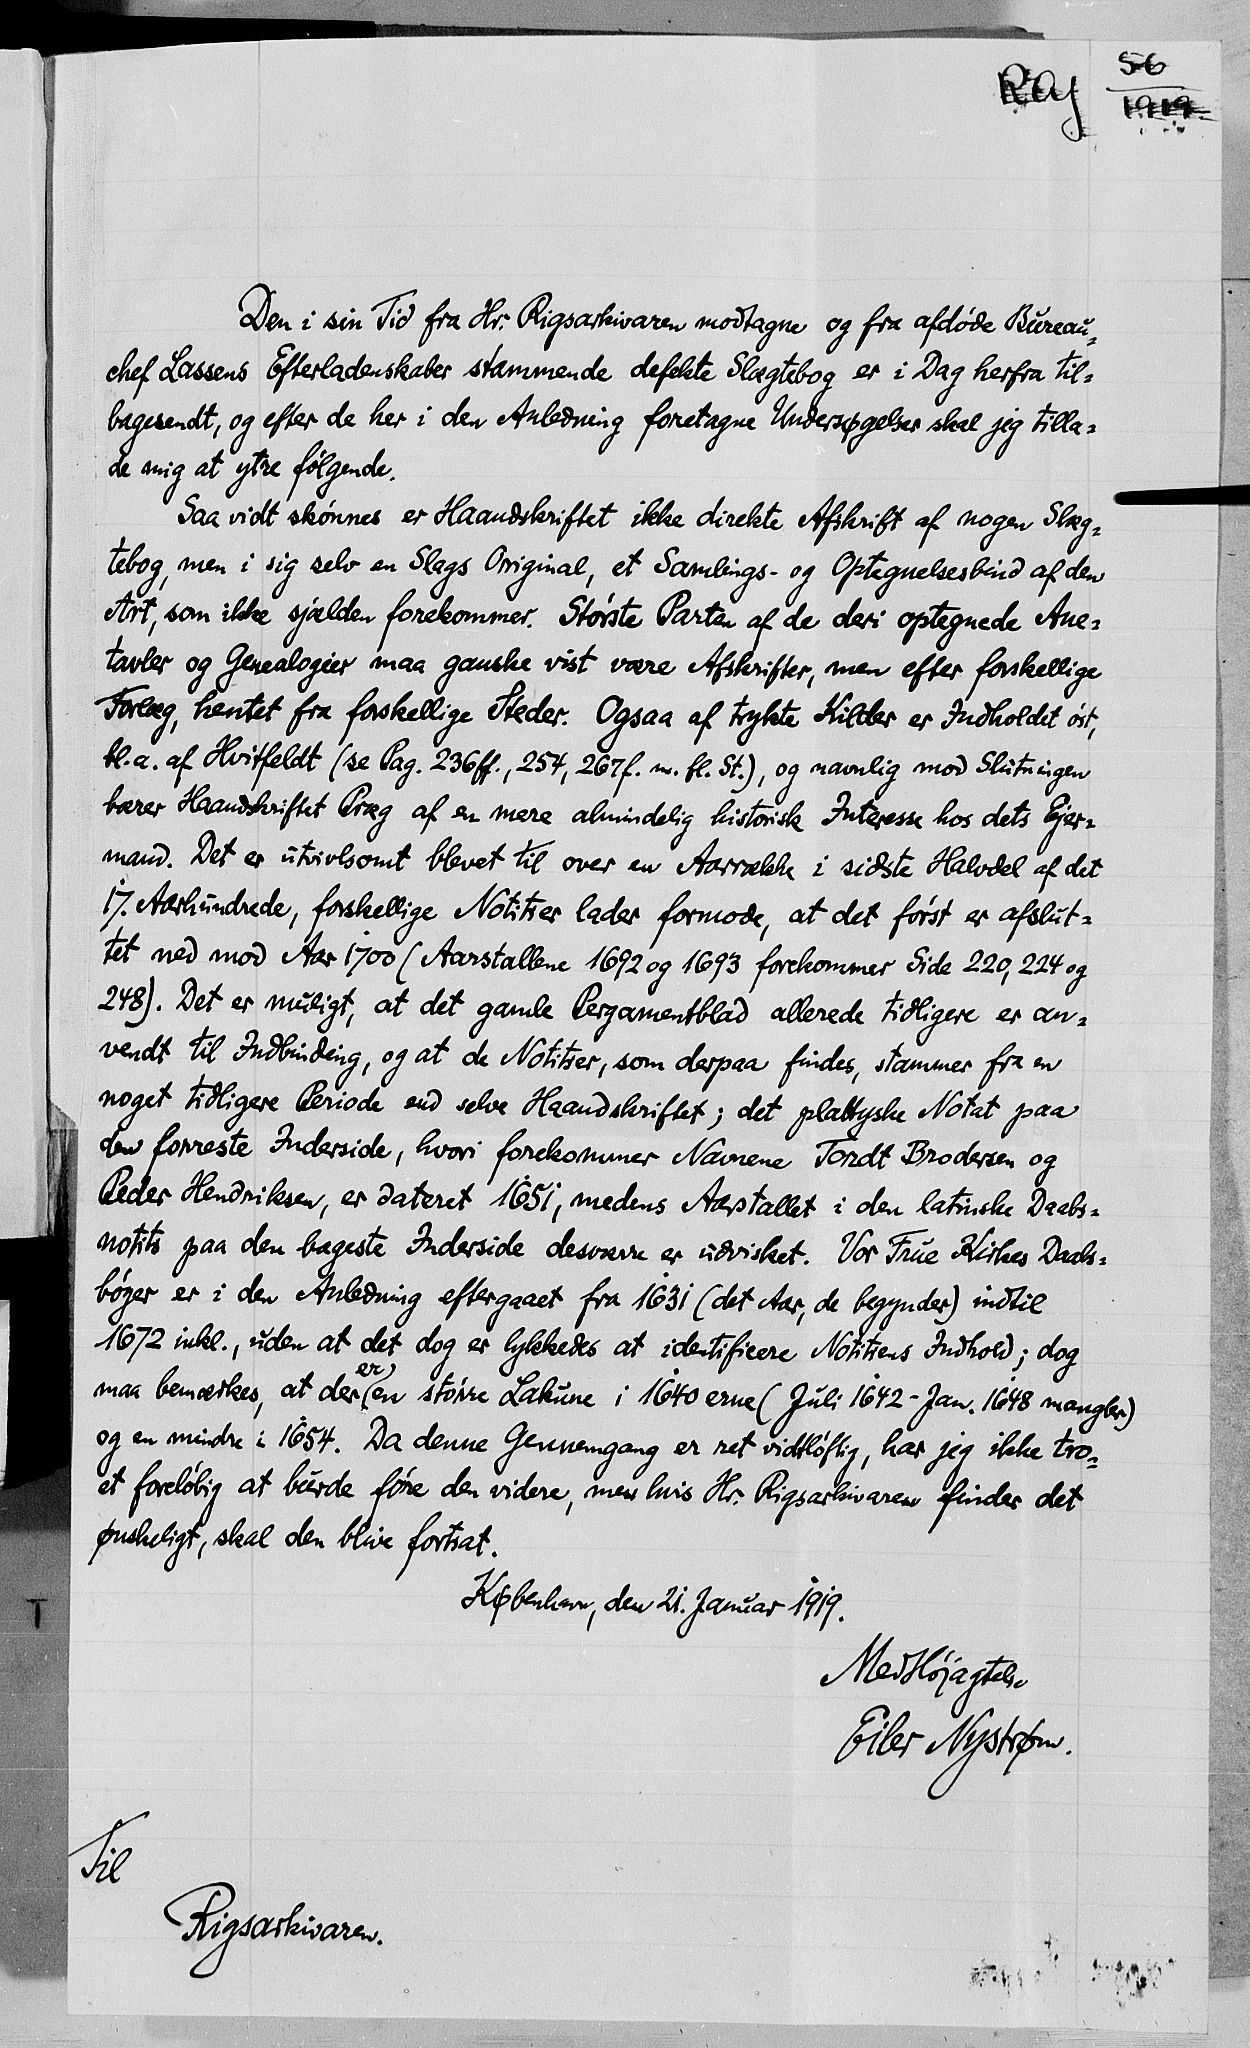 RAJ 56
1919.
Den i sin Tid fra Hr. Rigsarkivaren modtagne og fra afdøde Bureau-
chef Lassens Efterladenskaber stammende defekte Slægtebog er i Dag herfra til-
bagesendt, og efter de her i den Anledning foretagne Undersøgelser skal jeg tilla-
de mig at ytre følgende.
Saa vidt skønnes er Haandskriftet ikke direkte Afskrift af nogen Slæg-
tebog, men i sig selv en Slags Original, et Samlings- og Optegnelsesbind af den
Art, som ikke sjælden forekommer. Største Parten af de deri optegnede Ane-
tavler og Genealogier maa ganske vist være Afskrifter, men efter forskellige
Forlæg, hentet fra forskellige Steder. Ogsaa af trykte Kilder er Indholdet øst,
bl.a. af Hvitfeldt (se Pag. 236ff., 254, 267f. m. fl. St.), og navnlig mod Slutningen
bærer Haandskriftet Præg af en mere almindelig historisk Interesse hos dets Ejer-
mand. Det er utvivlsomt blevet til over en Aarrække i sidste Halvdel af det
17. Aarhundrede, forskellige Notitser lader formode, at det først er afslut-
tet ned mod Aar 1700 (Aarstallene 1692 og 1693 forekommer Side 220, 224 og
248). Det er muligt, at det gamle Pergamentblad allerede tidligere er an-
vendt til Indbinding, og at de Notitser, som derpaa findes, stammer fra en
noget tidligere Periode end selve Haandskriftet; det plattyske Notat paa
den forreste Inderside, hvori forekommer Navnene Tordt Brodersen og
Peder Hendriksen, er dateret 1651, medens Aarstallet i den latinske Daabs-
notits paa den bageste Inderside desværre er udvisket. Vor Frue Kirkes Daabs-
bøger er i den Anledning eftergaaet fra 1631 (det Aar, de begynder) indtil
1672 inkl., uden at det dog er lykkedes at identificere Notitsens Indhold; dog
maa bemærkes, at der er en større Lakune i 1640erne (Juli 1642-Jan. 1648 mangler)
og en mindre i 1654. Da denne Gennemgang er ret vidtløftig, har jeg ikke tro-
et foreløbig at burde føre den videre, men hvis Hr. Rigsarkivaren finder det
ønskeligt, skal den blive fortsat.
København, den 21. Januar 1919.
Med Højagtelse
Eiler Nystrøm.
Til
Rigsarkivaren.